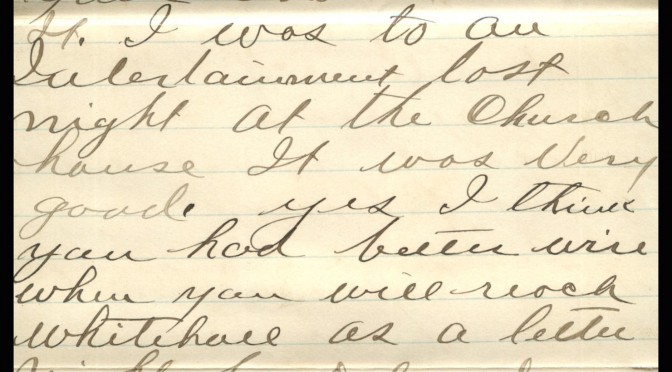 It. I was to an
Intertainment last
night at the Church
house It was Very
good. yes I think
you had better wire
when you will reach
Whitehall as a letter